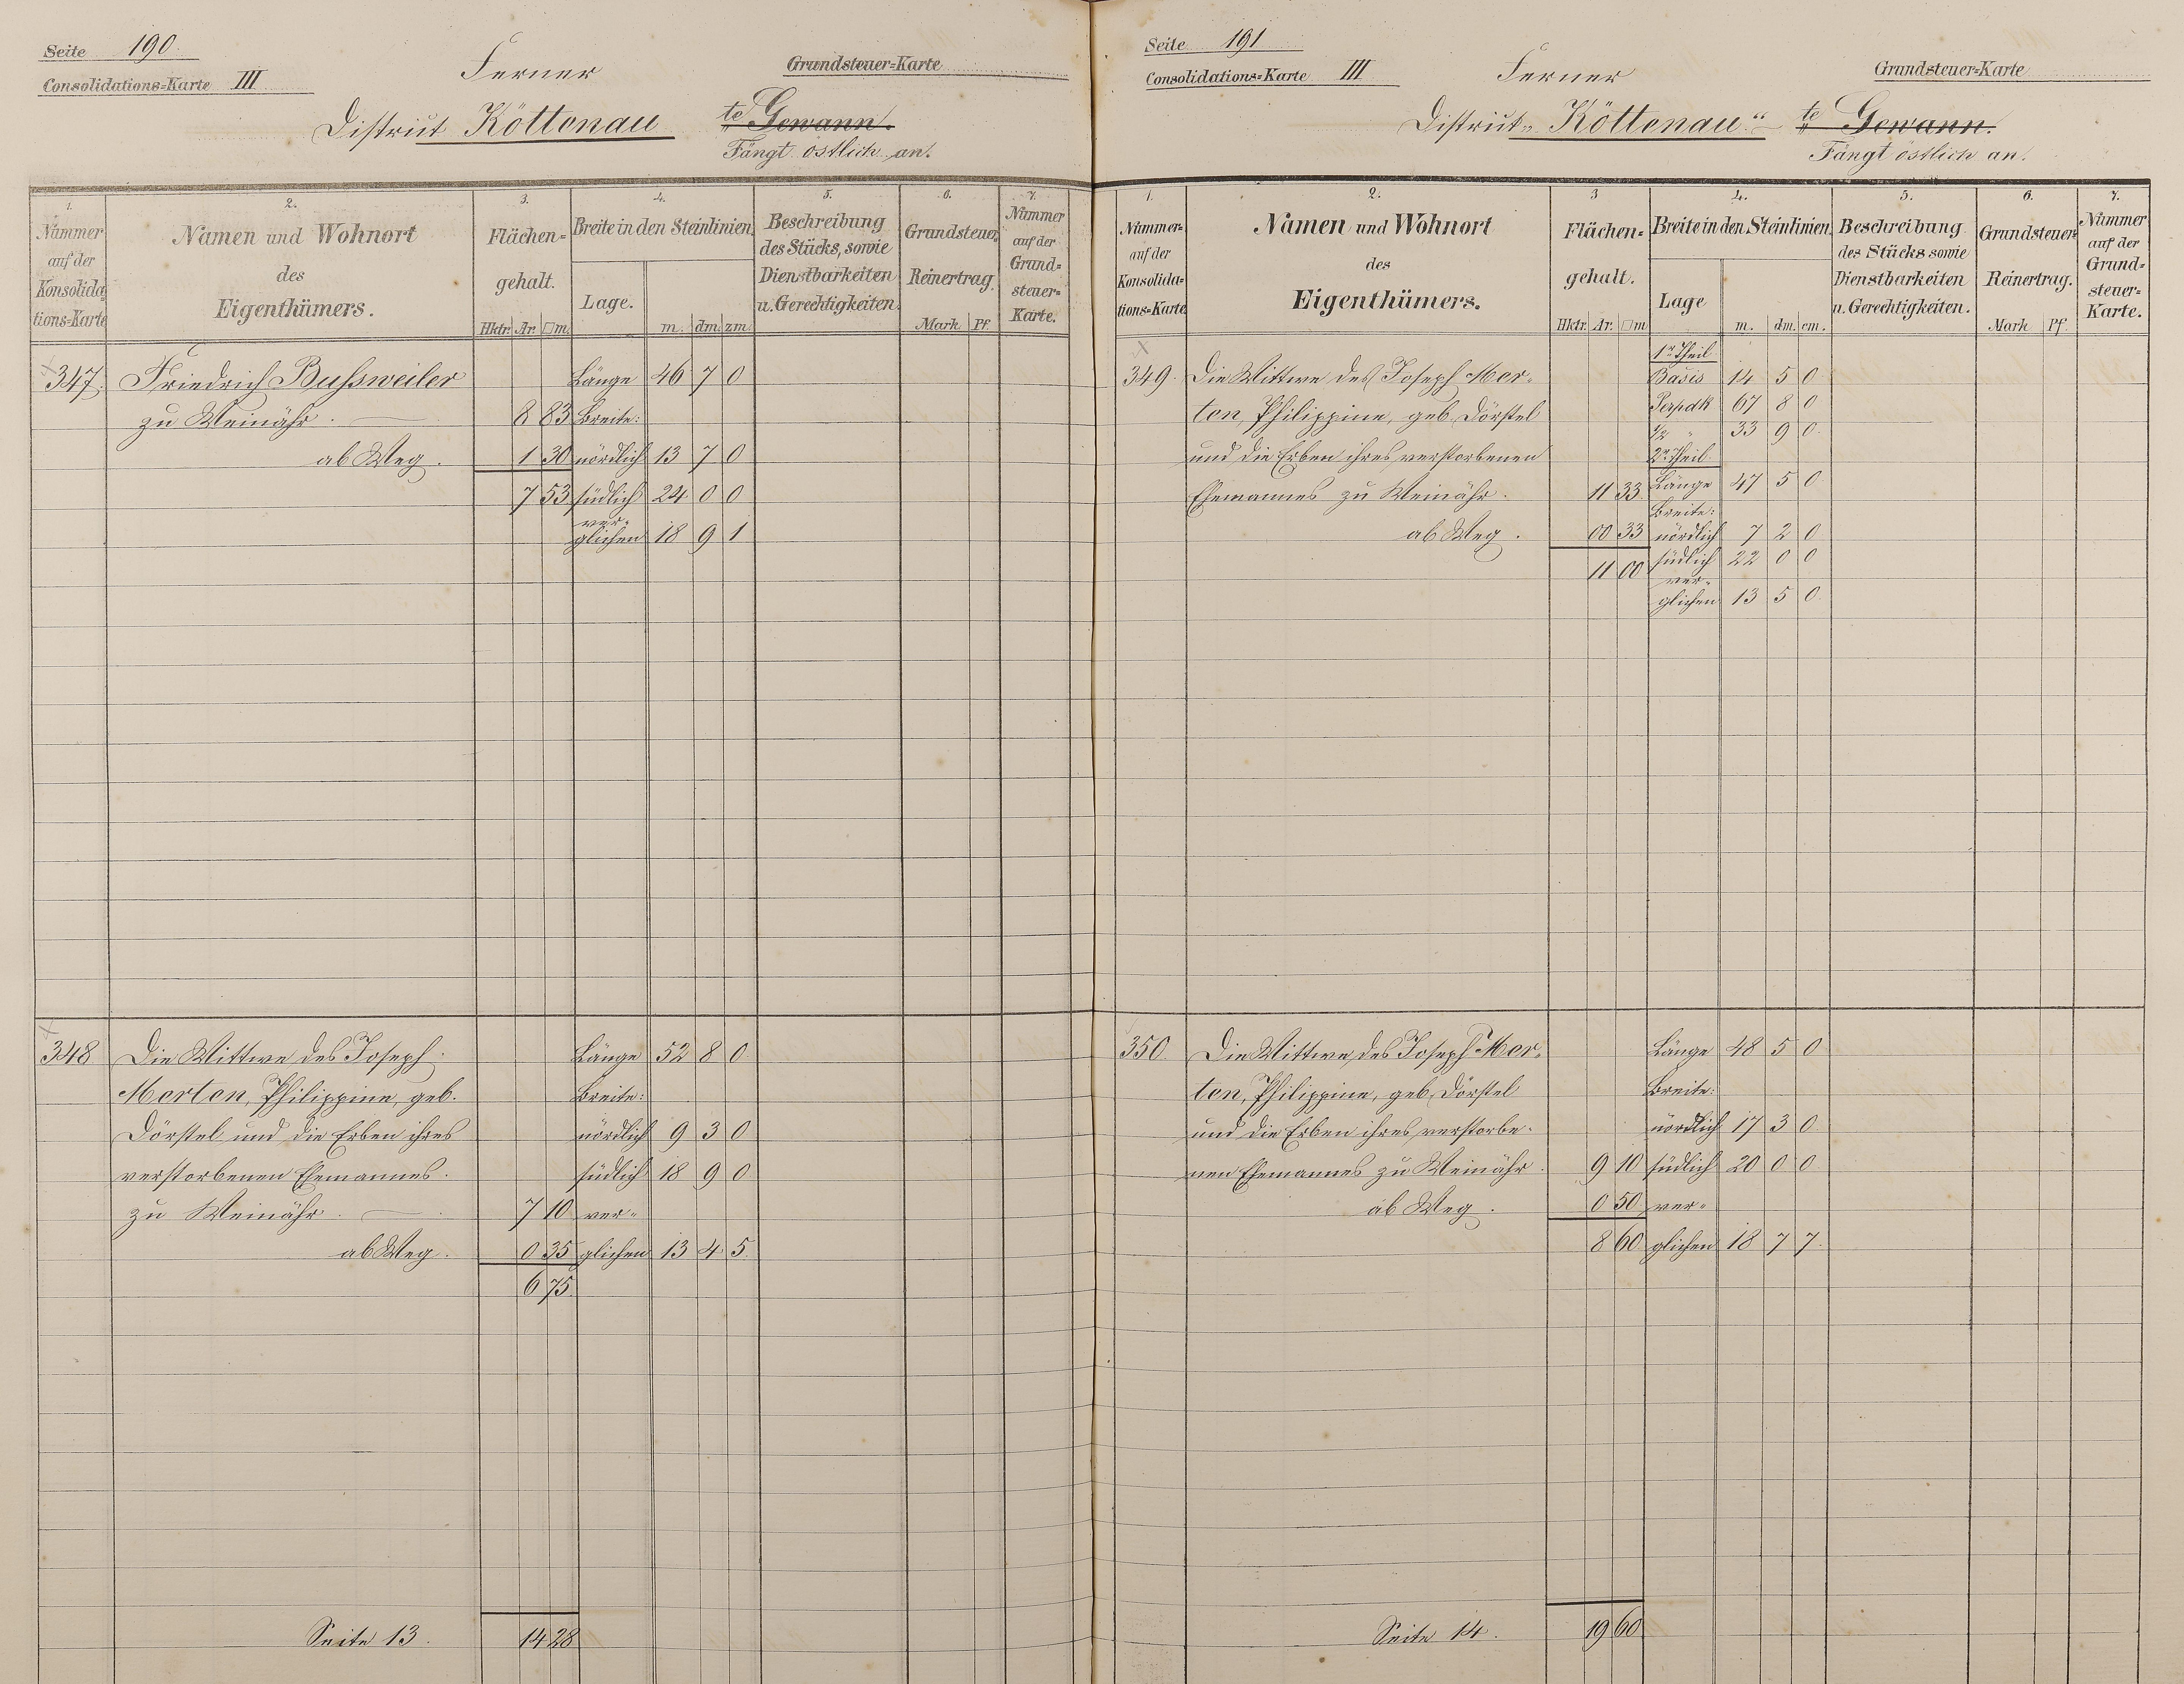 Seite 190.
Consolidations=Karte III
Ferner
Grundsteuer=Karte
District Köttenau te Gewann.
Fängt östlich an.
1. 2. 3. 4. 5. 6. 7.
Nummer auf der Konsolida=tions=Karte
Namen und Wohnort des Eigenthümers.
Flächen=gehalt. Hktr. Ar. □m.
Breite in den Steinlinien. Lage. m. dm. zm.
Beschreibung des Stücks, sowie Dienstbarkeiten u. Gerechtigkeiten.
Grundsteuer Reinertrag. Mark Pf.
Nummer auf der Grund=steuer=Karte.
347. Friedrich Bußweiler Länge 46 7 0
zu Weinähr. 8 83 Breite:
ab Weg. 1 30 nördlich 13 7 0
7 53 südlich 24 0 0
ver-
glichen 18 9 1
348 Die Wittwe des Joseph Länge 52 8 0
Merten, Philippine, geb. Breite:
Dörstel und die Erben ihres nördlich 9 3 0
verstorbenen Ehemannes. südlich 18 9 0
zu Weinähr. 7 10 ver-
ab Weg. 0 35 glichen 13 4 5
6 75
Seite 13. 14 28
Seite 191
Consolidations=Karte III
Ferner
Grundsteuer=Karte
District „Köttenau“ te Gewann.
Fängt östlich an.
1. 2. 3 4. 5. 6. 7.
Nummer= auf der Konsolida=tions=Karte
Namen und Wohnort des Eigenthümers.
Flächen=gehalt. Hktr. Ar. □m
Breite in den Steinlinien. Lage m. dm. cm.
Beschreibung des Stücks sowie Dienstbarkeiten u. Gerechtigkeiten.
Grundsteuer= Reinertrag. Mark Pf.
Nummer auf der Grund=steuer=Karte.
1r Theil
349. Die Wittwe des Joseph Mer- Basis 14 5 0
ten, Philippine, geb. Dörstel Perpdk 67 8 0
1/2 " 33 9 0
und die Erben ihres verstorbenen 2r Theil.
Ehemannes zu Weinähr. 11 33 Länge 47 5 0
Breite:
ab Weg. 00 33 nördlich 7 2 0
11 00 südlich 22 0 0
ver-
glichen 13 5 0
350. Die Wittwe des Joseph Mer- Länge 48 5 0
ten, Philippine, geb. Dörstel Breite:
und die Erben ihres verstorbe- nördlich 17 3 0
nen Ehemannes zu Weinähr. 9 10 südlich 20 0 0
ab Weg. 0 50 ver-
8 60 glichen 18 7 7
Seite 14. 19 60